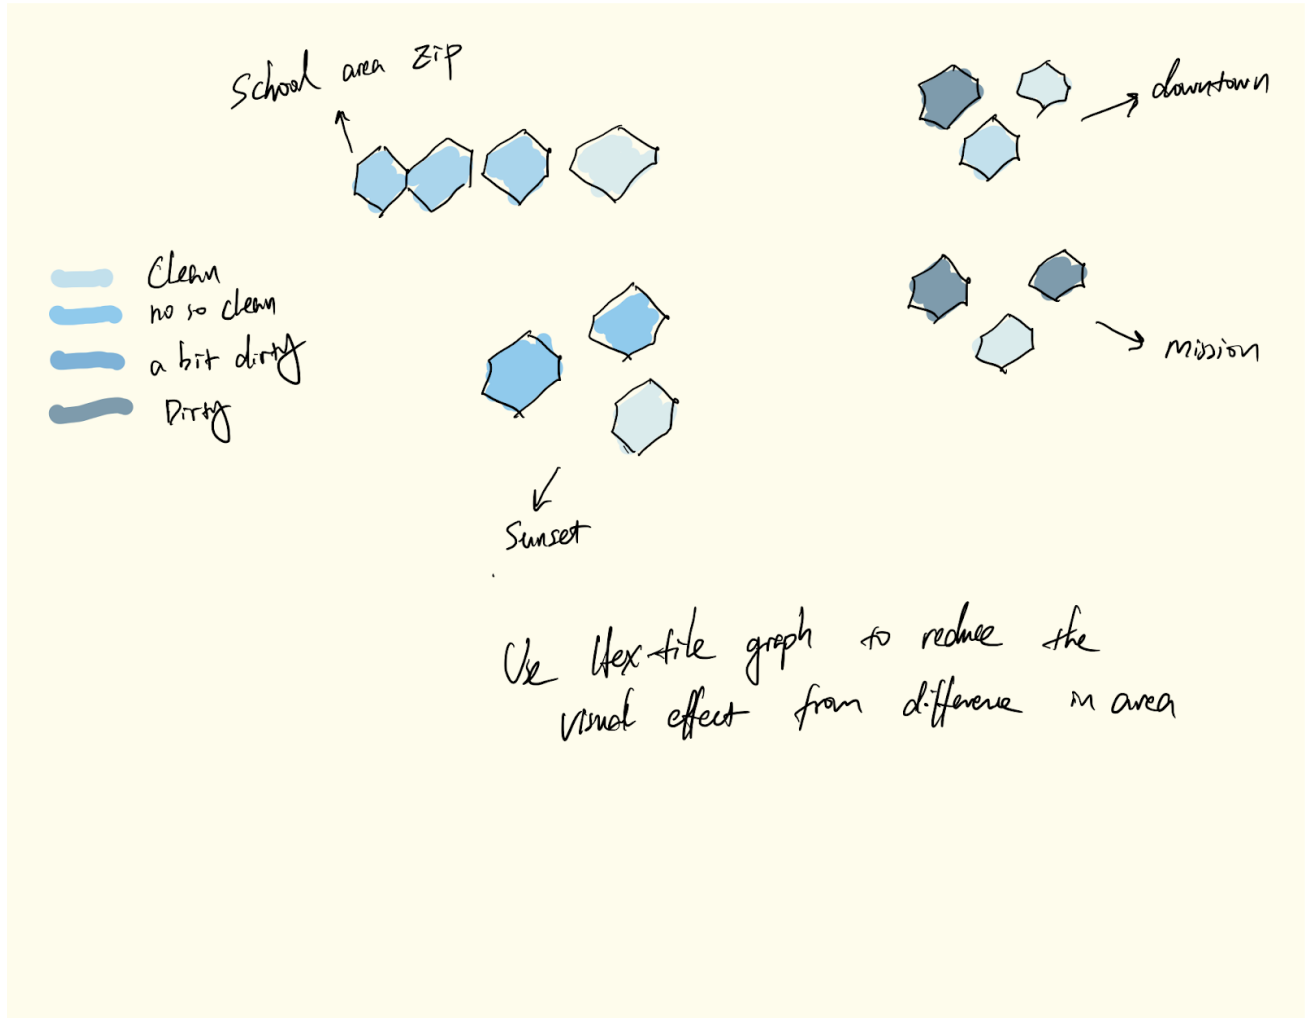 School area zip
downtown
Clean
no so clean
a bit dirty
Dirty
mission
Sunset
Use Hex-tile graph to reduce the
visual effect from difference in area